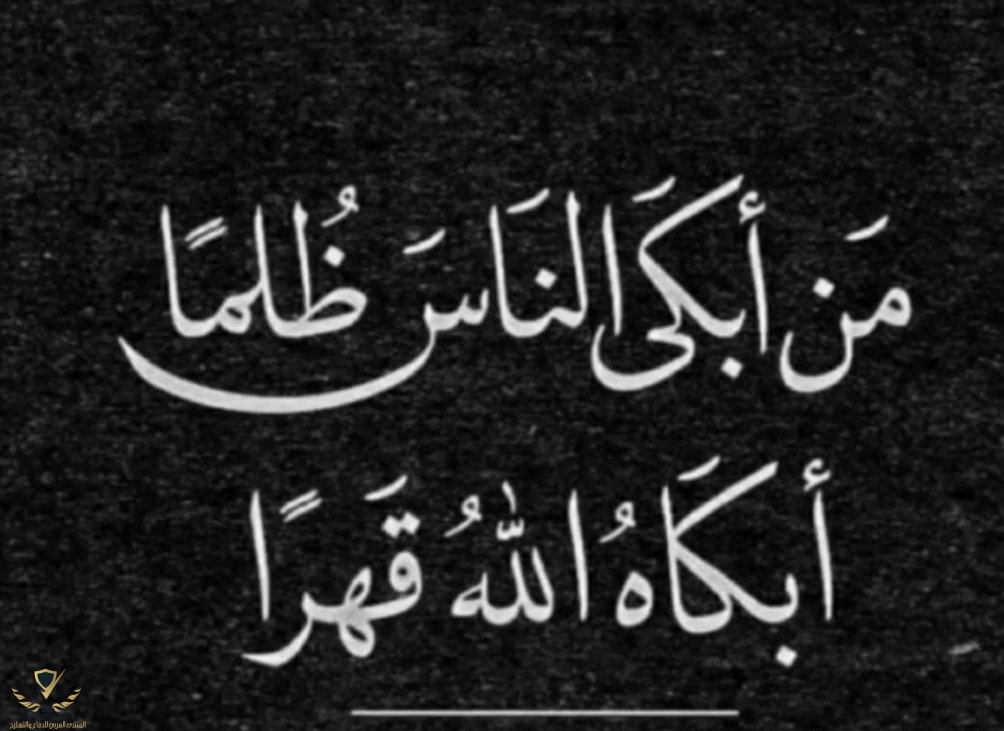 مَن أبكَى النَاسَ ظُلمًا
أبكَاهُ اللهُ قَهرًا
المنتدى العربي للدفاع والتسليح